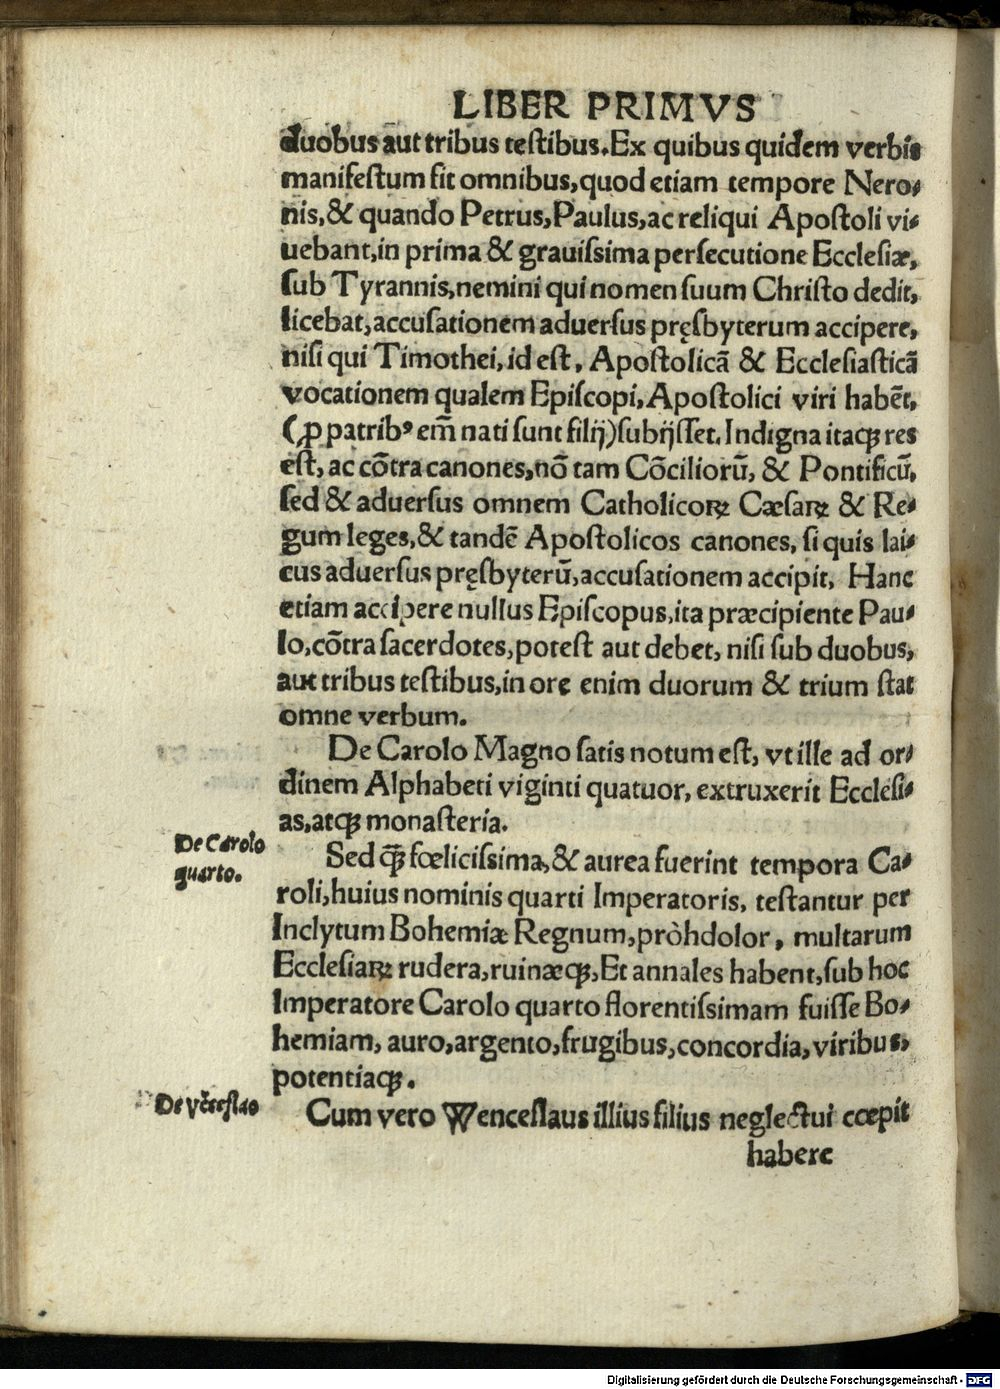 LIBER PRIMVS
duobus aut tribus teſtibus. Ex quibus quidem verbis
manifeſtum fit omnibus, quod etiam tempore Nero-
nis, & quando Petrus, Paulus, ac reliqui Apoſtoli vi-
uebant, in prima & grauiſsima perſecutione Eccleſiæ,
ſub Tyrannis, nemini qui nomen ſuum Chriſto dedit,
licebat, accuſationem aduerſus pręſbyterum accipere,
niſi qui Timothei, id eſt, Apoſtolicā & Eccleſiaſticā
vocationem qualem Epiſcopi, Apoſtolici viri habēt,
(ꝓ patribꝰ em̄ nati ſunt filij) ſubijſſet. Indigna itaqꝫ res
eſt, ac cōtra canones, nō tam Cōciliorū, & Pontificū,
ſed & aduerſus omnem Catholicoꝝ Cæſaꝝ & Re-
gum leges, & tandē Apoſtolicos canones, ſi quis lai-
cus aduerſus pręſbyterū, accuſationem accipit, Hanc
etiam accipere nullus Epiſcopus, ita præcipiente Pau-
lo, cōtra ſacerdotes, poteſt aut debet, niſi ſub duobus,
aut tribus teſtibus, in ore enim duorum & trium ſtat
omne verbum.
De Carolo Magno ſatis notum eſt, vt ille ad or-
dinem Alphabeti viginti quatuor, extruxerit Eccleſi-
as, atqꝫ monaſteria.
De Carolo
quarto.
Sed qꝫ̄ fœliciſsima, & aurea fuerint tempora Ca-
roli, huius nominis quarti Imperatoris, teſtantur per
Inclytum Bohemiæ Regnum, pròhdolor, multarum
Eccleſiaꝝ rudera, ruinæqꝫ, Et annales habent, ſub hoc
Imperatore Carolo quarto florentiſsimam fuiſſe Bo-
hemiam, auro, argento, frugibus, concordia, viribus,
potentiaqꝫ.
De Vēceſlao
Cum vero Wenceſlaus illius filius neglectui cœpit
habere
Digitalisierung gefördert durch die Deutsche Forschungsgemeinschaft - DFG